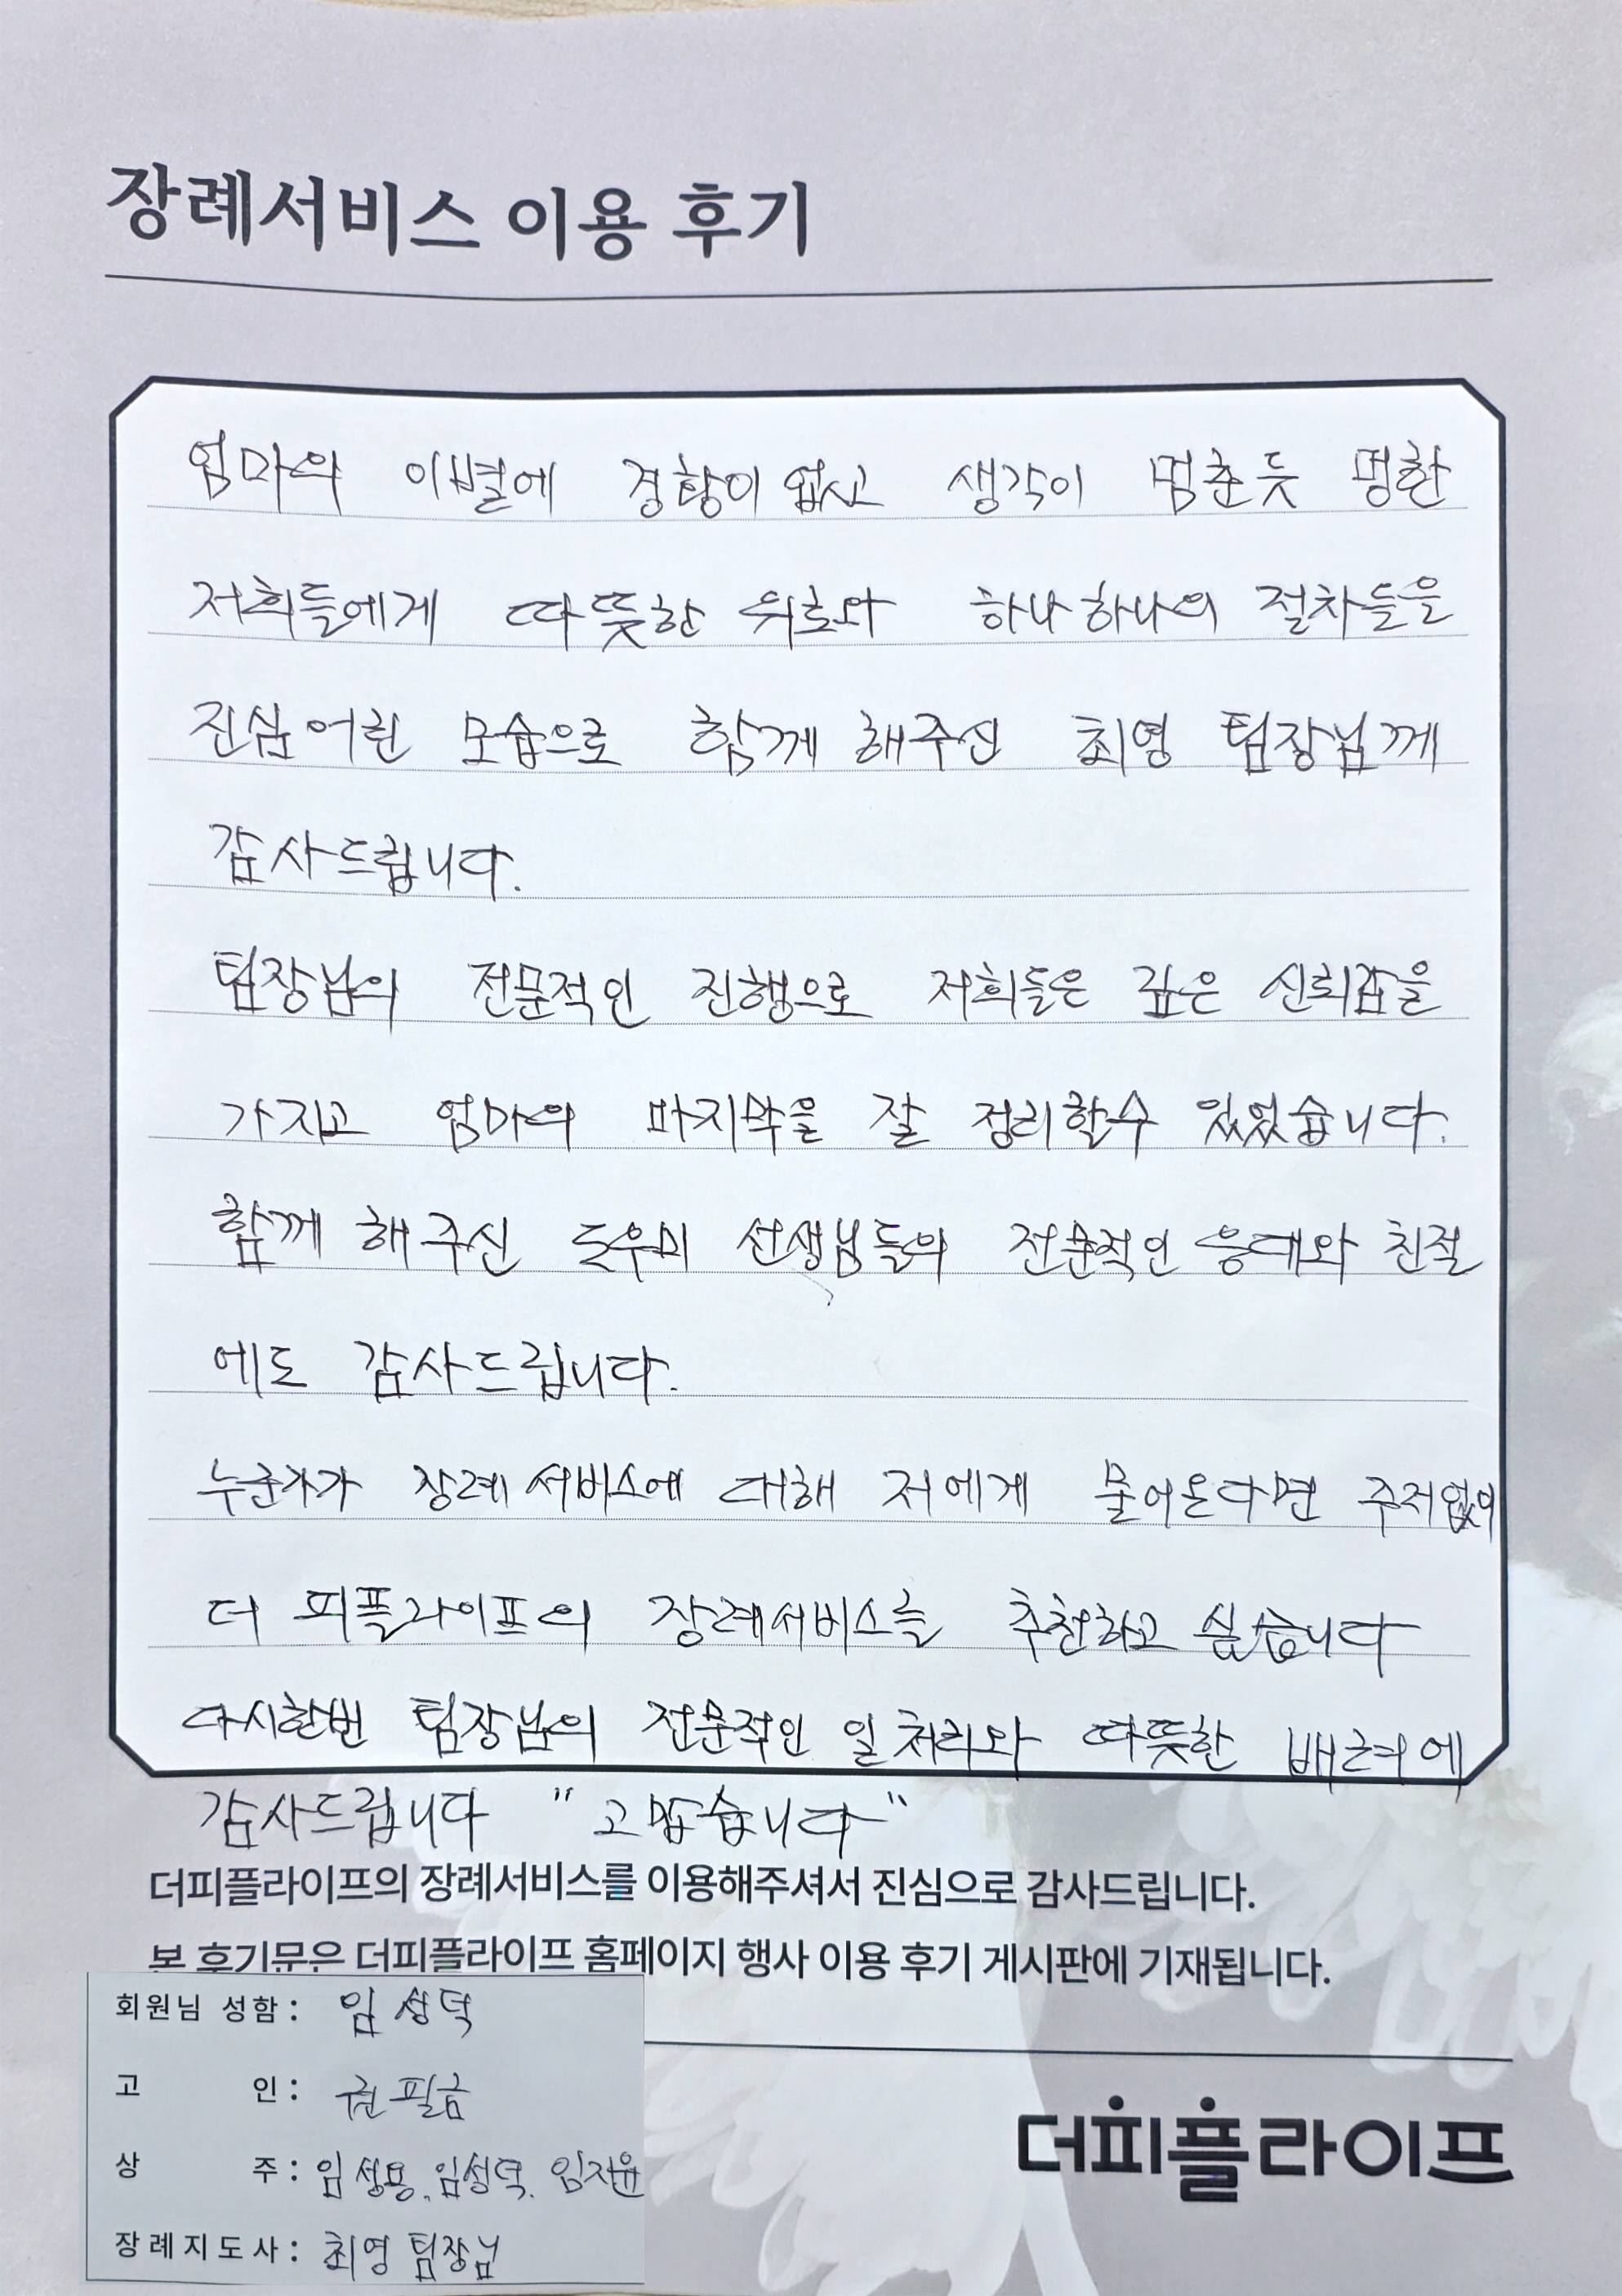 장례서비스 이용 후기
엄마의 이별에 경황이 없고 생각이 멈춘듯 멍한
저희들에게 따뜻한 위로와 하나하나의 절차들을
진심어린 모습으로 함께 해주신 최영 팀장님께
감사드립니다.
팀장님의 전문적인 진행으로 저희들은 깊은 신뢰감을
가지고 엄마의 마지막을 잘 정리할수 있었습니다.
함께 해주신 도우미 선생님들의 전문적인 응대와 친절
에도 감사드립니다.
누군가가 장례서비스에 대해 저에게 물어온다면 주저없이
더 피플라이프의 장례서비스를 추천하고 싶습니다
다시한번 팀장님의 전문적인 일처리와 따뜻한 배려에
감사드립니다 "고맙습니다"
더피플라이프의 장례서비스를 이용해주셔서 진심으로 감사드립니다.
본 후기문은 더피플라이프 홈페이지 행사 이용 후기 게시판에 기재됩니다.
회원님 성함: 임성덕
고 인: 권필금
상 주: 임성용, 임성덕, 임지윤
장례지도사: 최영 팀장님
더피플라이프